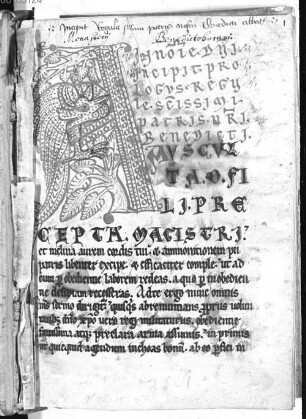 Incipit Regula
Monasterij
IN NO(IE) DNI.
INCIPIT PRO
LOGUS REGU
LE SCISSIMI
PATRIS NRI
BENEDICTI.
AUSCUL
TA. O. FI
LI. PRE
CEPTA. MAGISTRI
et inclina aurem cordis tui. & ammonitionem pii
patris libenter excipe. & efficaciter comple. ut ad
eum p obedientie laborem redeas. a quo p in obedien
tie desidiam recesseras. Ad te ergo nunc
sermo dirigit. quisquis abrenuntians propriis volun
tatibus dno xpo vero regi militaturus. obedientie
fortissima atq; preclara arma assumis. in primis
ut quicquid agendum inchoas bonu. ab eo pfici in